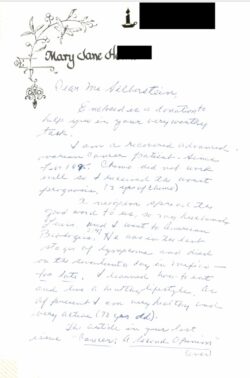 Mary Jane H
Dear Ms Silberstein,
Enclosed is a donation to
help you in your very worthy
task.
I am a recovered advanced
ovarian cancer patient. Since
Chemo did not work
well as I received the worst
prognosis,
A neighbor spread the
good word to us, so my husband
and I went to American
Biologics. He was in the last
stage of lymphoma and died
on the
too late. I learned how to eat
and live a healthy lifestyle. As
of present I am very healthy and
very active (70 yrs old).
The article in your last
issue "Cancer; A Second Opinion"
(over)